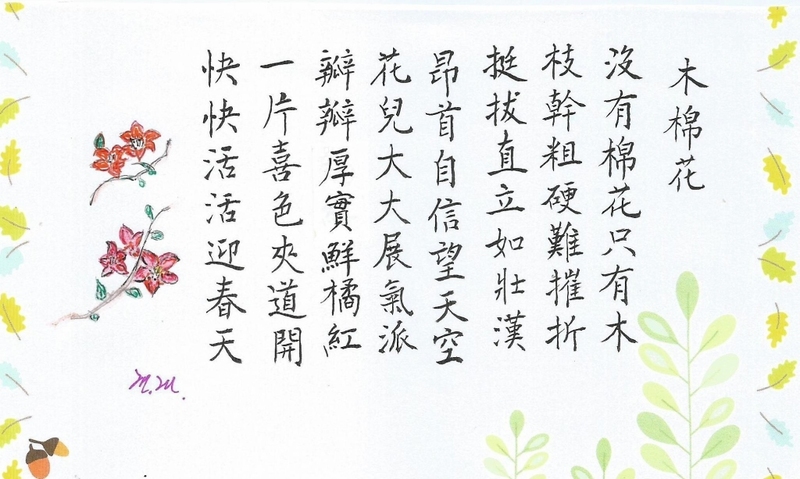 木棉花
沒有棉花只有木
枝幹粗硬難摧折
挺拔直立如壯漢
昂首自信望天空
花兒大大展氣派
瓣瓣厚實鮮橘紅
一片喜色夾道開
快快活活迎春天